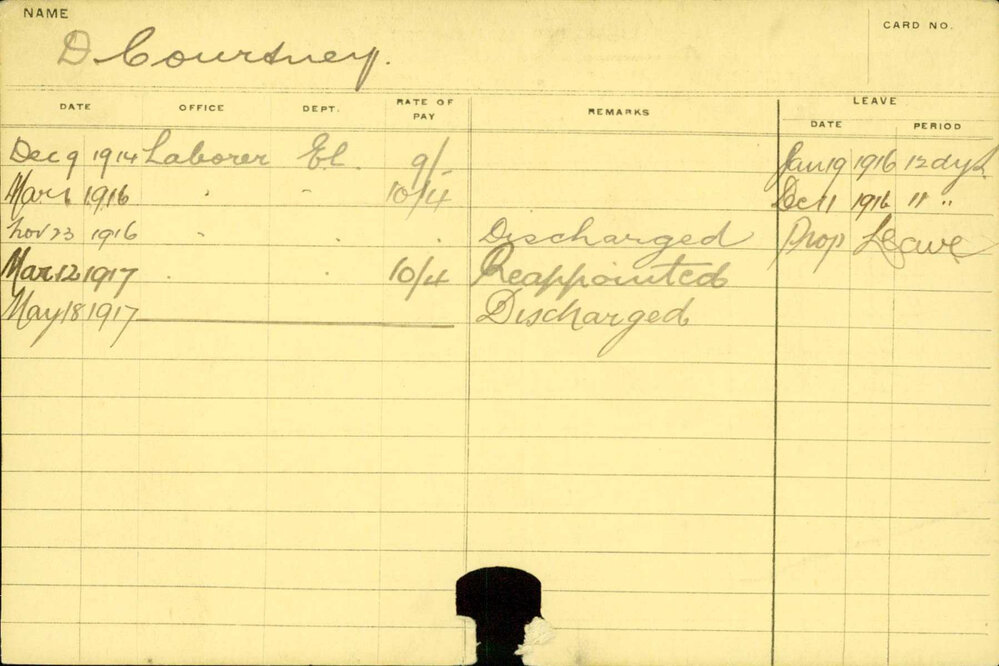 NAME
D Courtney.
CARD NO.
DATE OFFICE DEPT. RATE OF PAY REMARKS LEAVE
DATE PERIOD
Dec 9 1914 Laborer El. 9/- Jan 19 1916 12 dys
Mar 1 1916 " " 10/4 Dec 11 1916 " "
Nov 23 1916 " " " Discharged Prop Leave
Mar 12 1917 " " 10/4 Reappointed
May 18 1917 Discharged